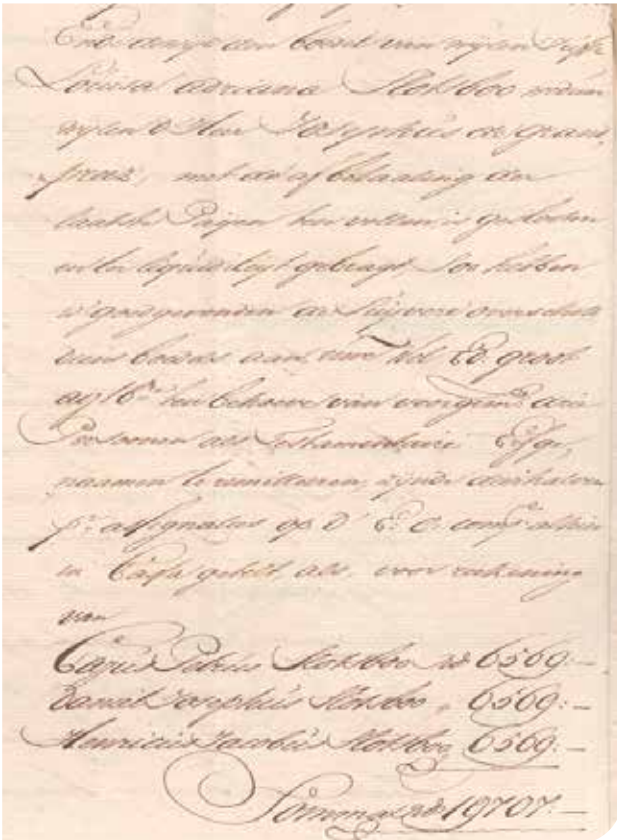 Ende eenige den boedel van wijlen Juff:r
Louisa Adriana Stokbro weduw
wijlen d' Heer Josephus de Grand
preez, met de afbetaaling der
laatste Paijen ten vollen is gesloten
en ter liquiditijt gebragt, Soo hebben
wij goedgevonden de Suijvere overschott
deens boedels aan, uwe Wel Ed: groot
agtb:re ten behoeve van voorgem: drie
Persoonen als Testamentaire Erfge,
naamen te remitteren, zijnde deselve
p:r assignatie op d' E: O: comp:e alhier
in Cassa getelt, als. voor reekening
van
Carus Petrus Stokbro rd:s 6569:—
Daniel Josephus Stokbro „ 6569:—
Henricus Jacobus Stokbro „ 6569:—
Somma rd:s 19707:—